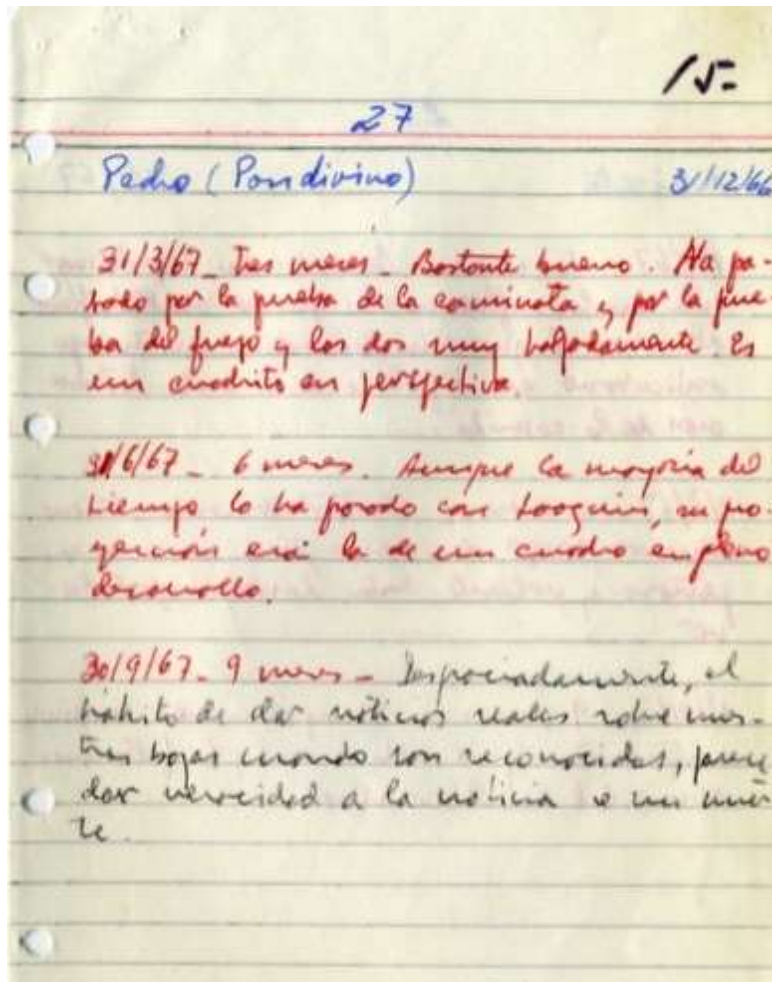 15-
27
Pedro (Pandivino) 31/12/66
31/3/67_ Tres meses_ Bastante bueno. Ha pa-
sado por la prueba de la caminata y por la prue
ba del fuego y las dos muy holgadamente. Es
un cuadrito en perspectiva.
31/6/67_ 6 meses. Aunque la mayoría del
tiempo lo ha pasado con Joaquin, su pro-
yección era la de un cuadro en pleno
desarrollo.
30/9/67_ 9 meses_ Desgraciadamente, el
hábito de dar noticias reales sobre nues-
tras bajas cuando son reconocidas, parece
dar veracidad a la noticia de su muer
te.